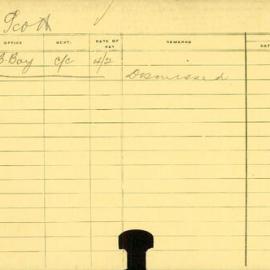 Scott
OFFICE DEPT. RATE OF PAY REMARKS
B. Bay c/c 4/2 Dismissed